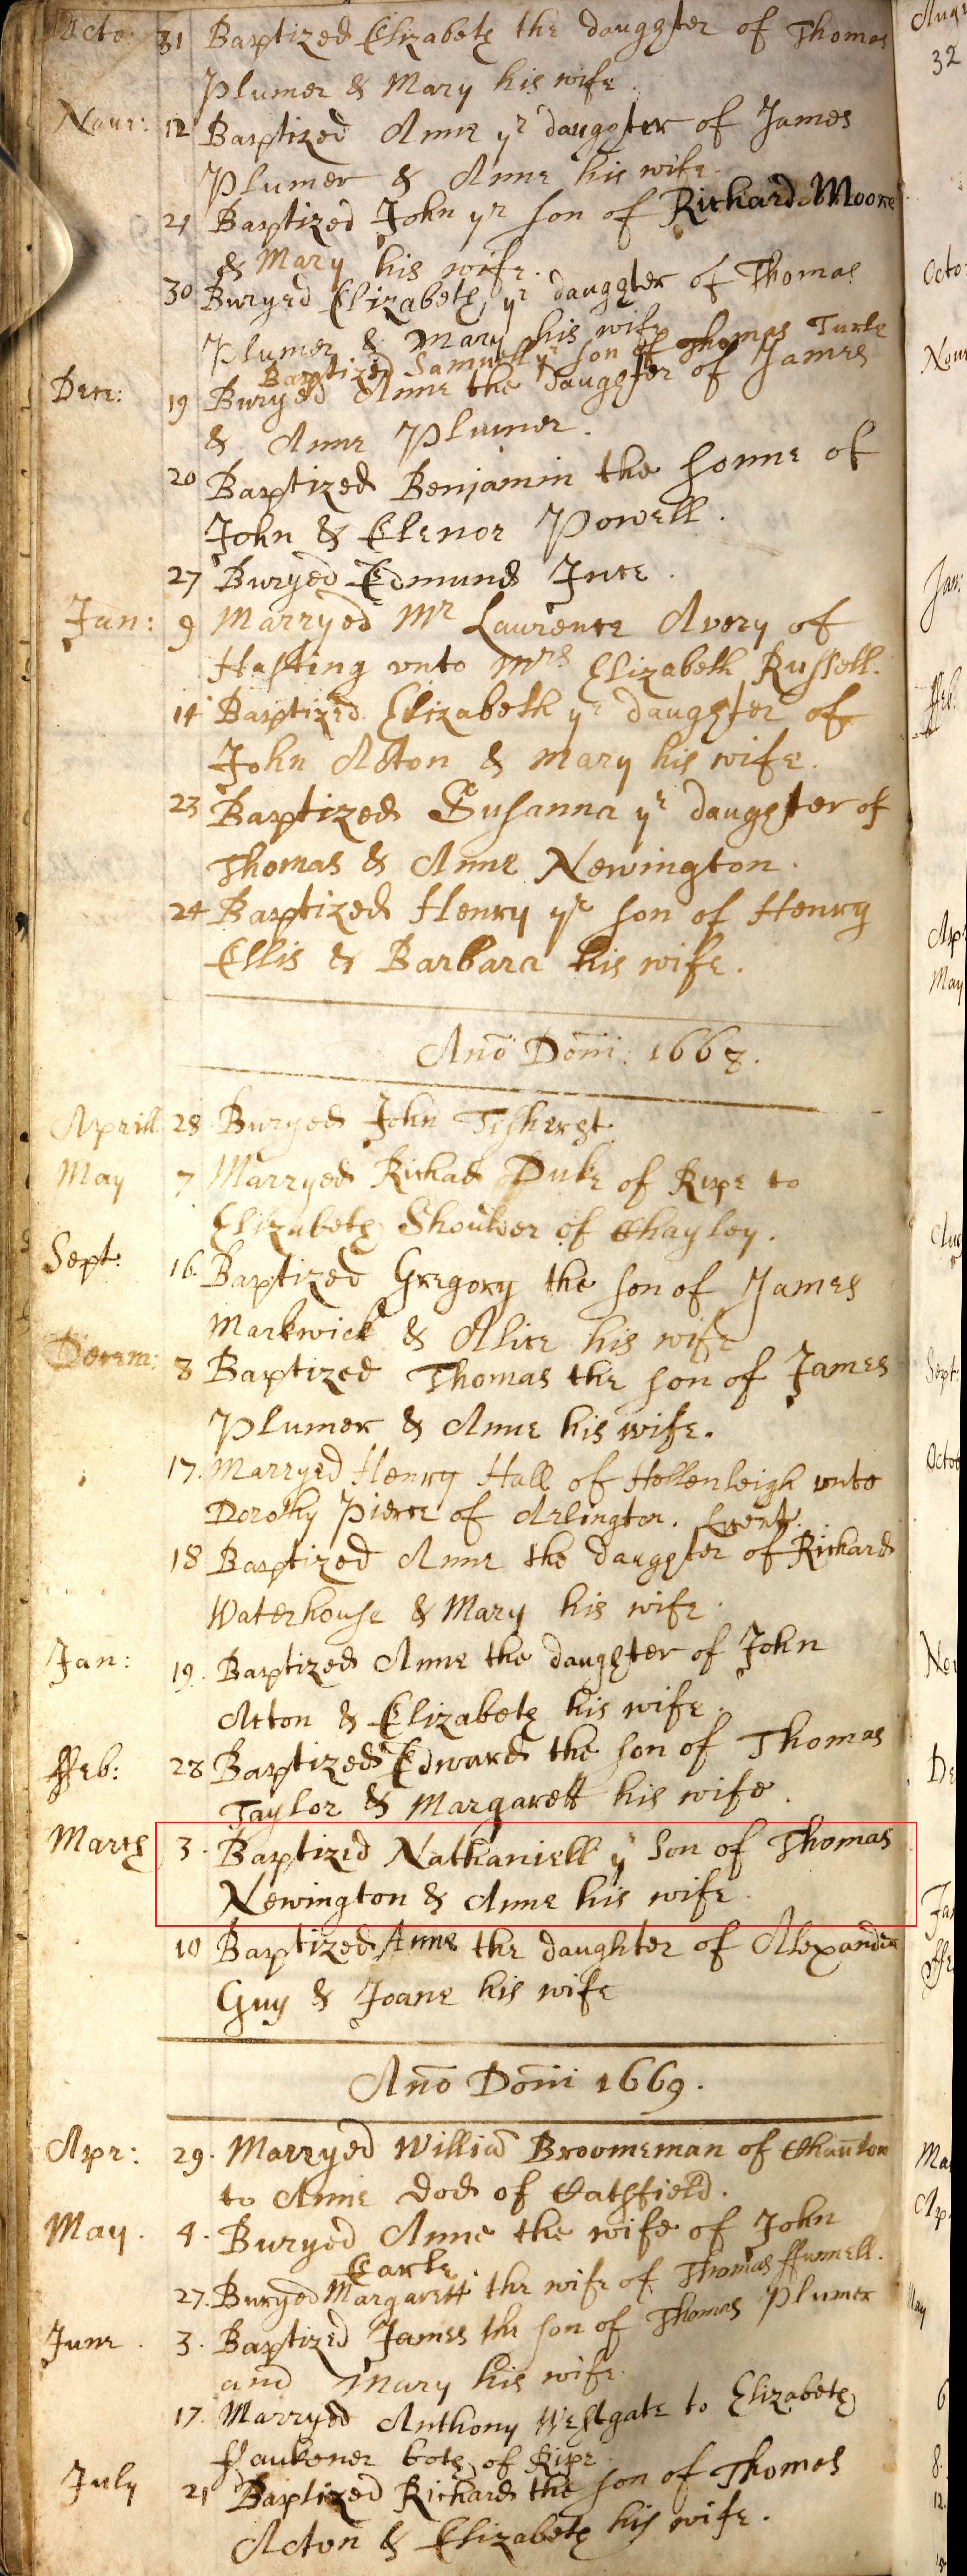 Octo: 31 Baptized Elizabeth the daughter of Thomas
Plumer & Mary his wife
Nour: 12 Baptized Anne yr daughter of James
Plumer & Anne his wife.
21 Baptized John yr son of Richard Moore
& Mary his wife.
30 Buryed Elizabeth yr daughter of Thomas
Plumer & Mary his wife
Baptized Samuell yr son of Thomas Turle
Dece: 19 Buryed Anne the daughter of James
& Anne Plumer.
20 Baptized Benjamin the sonne of
John & Elenor Powell.
27 Buryed Edmund Ince.
Jan: 9 Marryed Mr Laurence Avery of
Hasting vnto Mrs Elizabeth Russell.
14 Baptized Elizabeth yr daughter of
John Acton & Mary his wife.
23 Baptized Susanna yr daughter of
Thomas & Anne Newington.
24 Baptized Henry yr son of Henry
Ellis & Barbara his wife.
Ano Domi: 1668.
Aprill 28 Buryed John Tisherst
May 7 Marryed Richad Duke of Ripe to
Elizabeth Shoulder of Chayley.
Sept: 16. Baptized Gregory the son of James
Markwick & Alice his wife
Decem: 8 Baptized Thomas the son of James
Plumer & Anne his wife.
17. Marryed Henry Hall of Hellenleigh vnto
Dorothy Pierce of Arlington.
18 Baptized Anne the daughter of Richard
Waterhouse & Mary his wife.
Jan: 19. Baptized Anne the daughter of John
Acton & Elizabeth his wife.
ffeb: 28 Baptized Edward the son of Thomas
Taylor & Margarett his wife.
March 3. Baptized Nathaniell y son of Thomas
Newington & Anne his wife.
10 Baptized Anne the daughter of Alexander
Guy & Joane his wife
Ano Domi 1669.
Apr: 29. Marryed Willia Broomeman of
to Anne Dod of Catsfield.
May. 4. Buryed Anne the wife of John
Earle.
27. Buryed Margarett the wife of Thomas ffunnell.
June. 3. Baptized James the son of Thomas Plumer
and Mary his wife.
17. Marryed Anthony Westgate to Elizabeth
ffaukener both of Ripe.
July 21 Baptized Richard the son of Thomas
Acton & Elizabeth his wife.